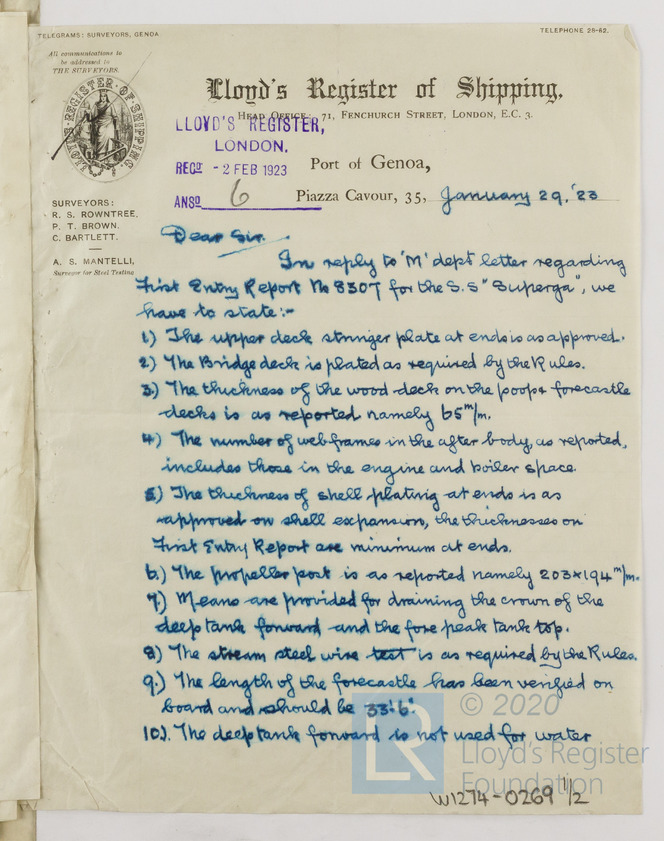 TELEGRAMS: SURVEYORS, GENOA
TELEPHONE 28-62.
All communications to
be addressed to
THE SURVEYORS.
LLOYD'S REGISTER OF SHIPPING.
Lloyd's Register of Shipping.
HEAD OFFICE:- 71, FENCHURCH STREET, LONDON, E.C. 3.
LLOYD'S REGISTER,
LONDON.
RECD - 2 FEB 1923
ANSD 6
Port of Genoa,
Piazza Cavour, 35, January 29, '23
SURVEYORS:
R. S. ROWNTREE.
P. T. BROWN.
C. BARTLETT.
A. S. MANTELLI,
Surveyor for Steel Testing
Dear Sir.
In reply to 'M' dept letter regarding
First Entry Report No 8307 for the S.S "Superga", we
have to state:-
1) The upper deck stringer plate at ends is as approved.
2) The Bridge deck is plated as required by the Rules.
3) The thickness of the wood deck on the poop & forecastle
decks is as reported namely 65 m/m.
4) The number of web frames in the after body, as reported,
includes those in the engine and boiler space.
5) The thickness of shell plating at ends is as
approved on shell expansion, the thicknesses on
First Entry Report are minimum at ends.
6) The propeller post is as reported namely 203 x 194 m/m.
7) Means are provided for draining the crown of the
deep tank forward and the fore peak tank top.
8) The stream steel wire test is as required by the Rules.
9.) The length of the forecastle has been verified on
board and should be 33'-6".
10). The deep tank forward is not used for water
© 2020
LR
Lloyd's Register
Foundation
W1274-0269 1/2